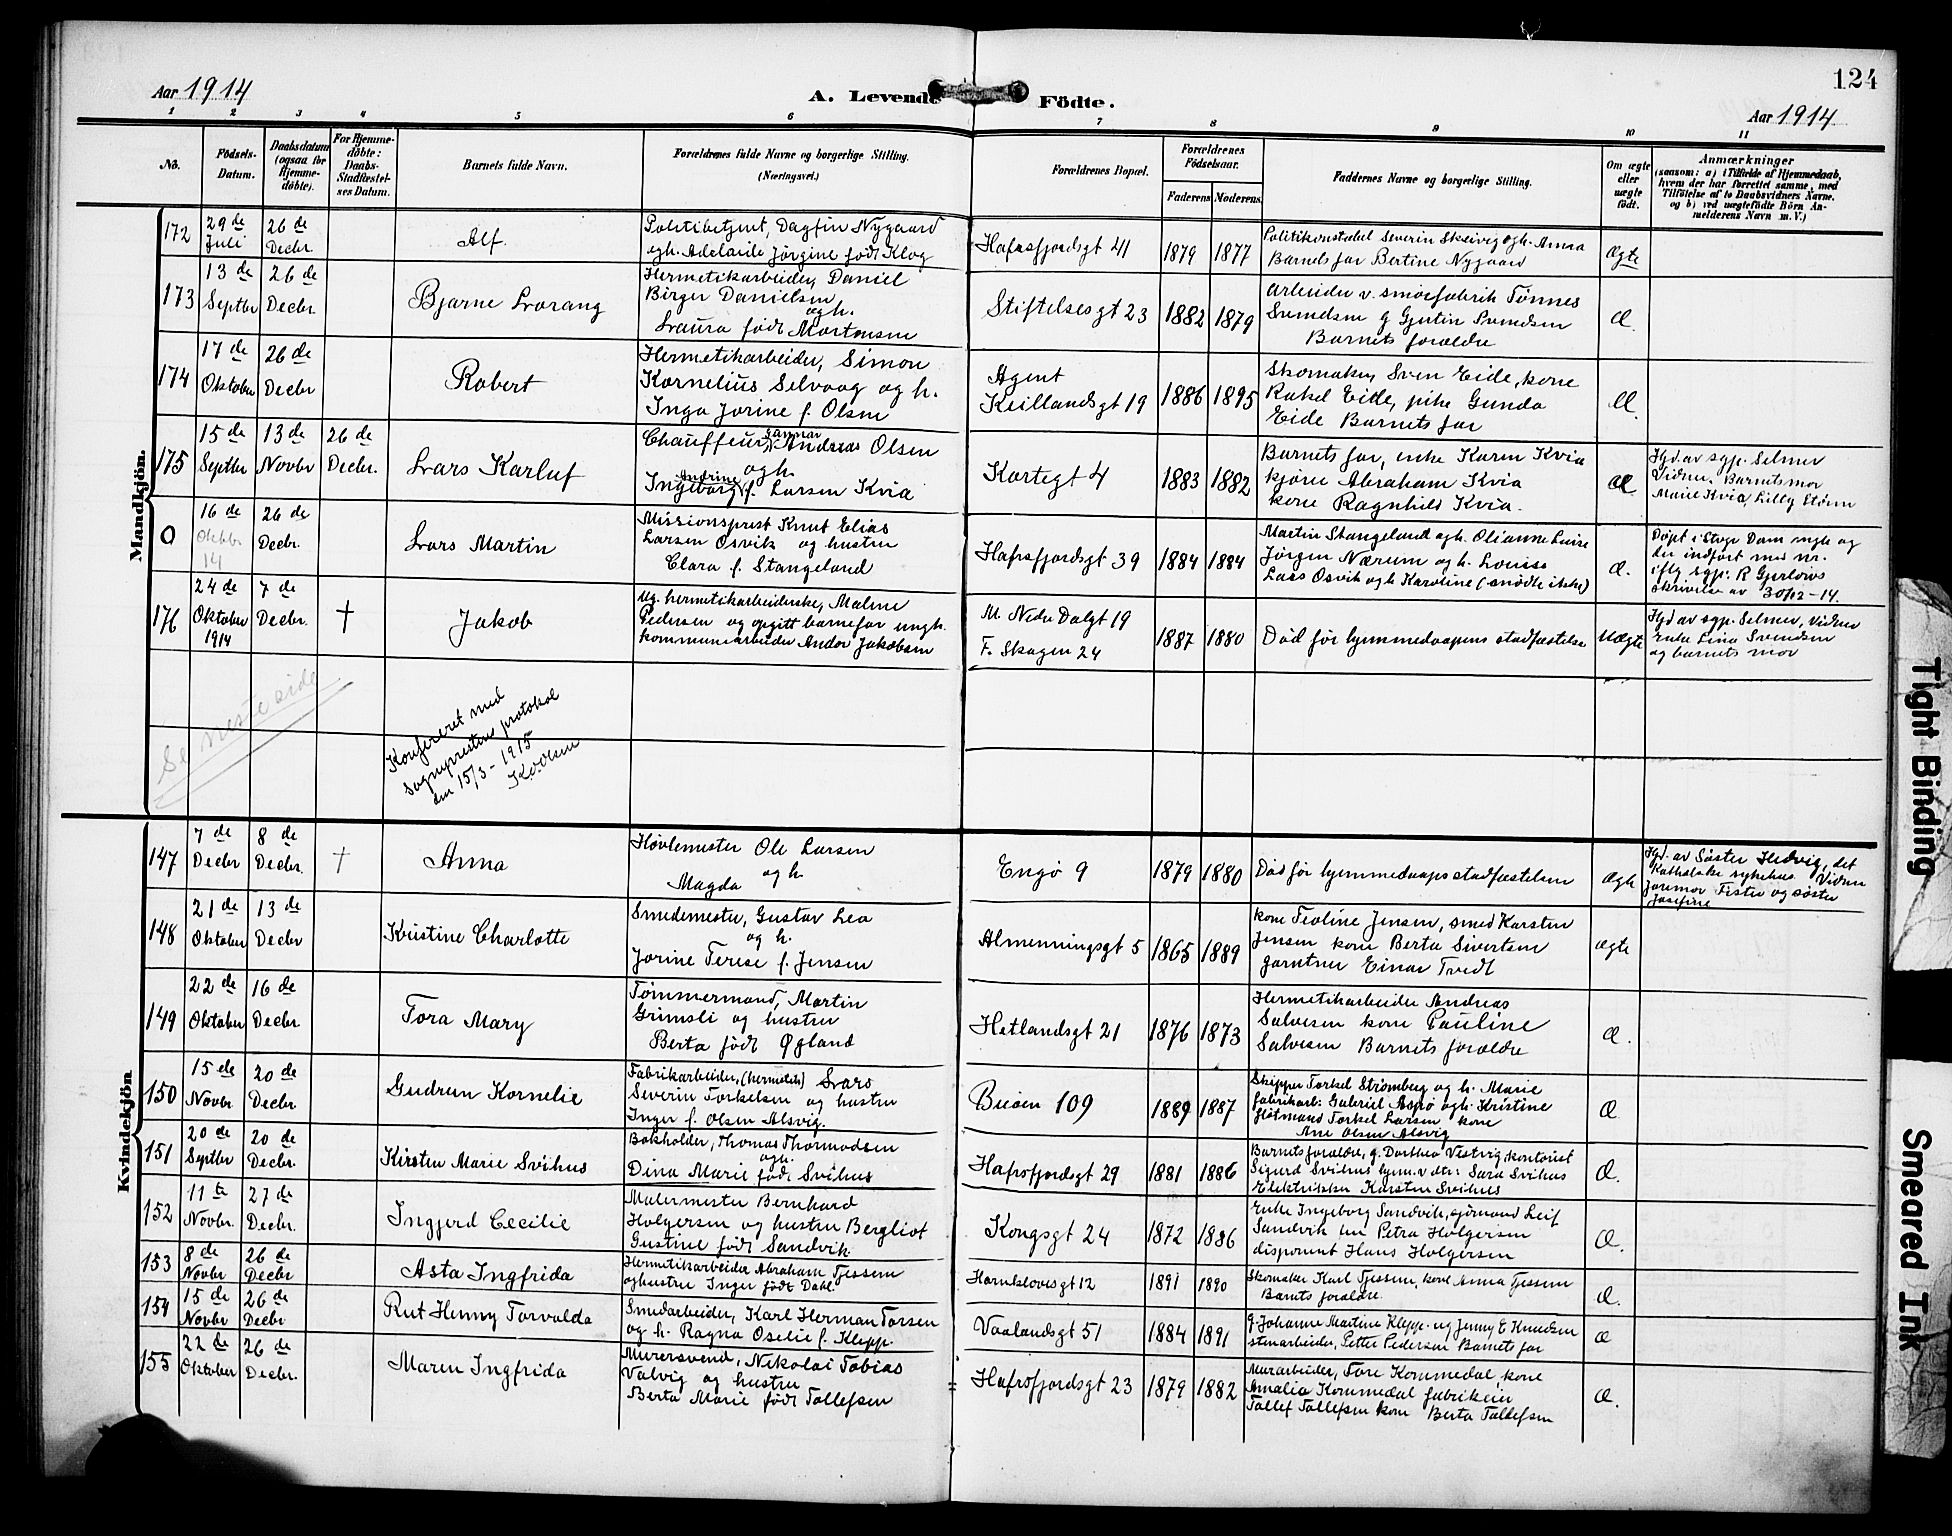 124
Aar 1914
A. Levende Födte.
Aar 1914
1 2 3 4 5 6 7 8 9 10 11
No.
Födsels-
Datum.
Daabsdatum
(ogsaa for
Hjemme-
döbte).
For Hjemme-
döbte:
Daabs-
Stadfæstel-
ses Datum.
Barnets fulde Navn.
Forældrenes fulde Navne og borgerlige Stilling.
(Næringsvei.)
Forældrenes Bopæl.
Forældrenes
Födselsaar.
Faderens Moderens
Faddernes Navne og borgerlige Stilling.
Om ægte
eller
uægte
födt.
Anmærkninger
(saasom: a) i Tilfælde af Hjemmedaab,
hvem der har forrettet samme, med
Tilföielse af to Daabsvidners Navne.
og b) ved uægtefödte Börn An-
melderens Navn m. V.)
Mandkjön.
172
29de
Juli
26de
Decbr.
Alf.
Politibetjent, Dagfin Nygaard
og h. Adelaide Jørgine født Klog
Hafrsfjordsgt 41
1879 1877
Politikonstabel Severin Skeivig og h. Anna
Barnets far Bertine Nygaard
Ægte
173
13de
Septbr
26de
Decbr.
Bjarne Lorang
Hermetikarbeider, Daniel
Birger Danielsen
og h.
Laura født Mortensen
Stiftelsesgt 23
1882 1879
Arbeider v. smørfabrik Tønnes
Svendsen g Gjertin Svendsen
Barnets forældre
Æ.
174
17de
Oktober
26de
Decbr
Robert
Hermetikarbeider, Simon
Kornelius Selvaag og h.
Inga Jorine f. Olsen
Agent
Kiellandsgt 19
1886 1895
Skomaker Sven Eide, kone
Rakel Eide, pike Gunda
Eide Barnets far
Æ.
175
15de
Septbr
13de
Novbr
26de
Decbr.
Lars Karluf
Chauffeur, Gunnar Andreas Olsen
og h.
Ingeborg Andrine f. Larsen Kvia
Kortegt 4
1883 1882
Barnets far, enke Karen Kvia
kjører Abraham Kvia
kone Ragnhild Kvia.
Æ.
Hjd. av sgp. Selmer
Vidner: Barnets mor
Marie Kvia, Lilly Størm
0
16de
Oktbr.
14
26de
Decbr.
Lars Martin
Missionsprest Knut Elias
Larsen Osvik og hustru
Clara f. Stangeland
Hafrsfjordsgt 39
1884 1884
Martin Stangeland og h. Olianne Luise
Jørgen Nærum og h. Louise
Lars Osvik og h. Karoline (-mødte ikke)
Æ.
Døpt i Stvgr Dom mgh og
der indført med nr.
iflg sgp. R Gjerløws
skrivelse av 30/12-14.
176
24de
Oktober
1914
7de
Decbr.
†
Jakob
Ug. hermetikarbeiderske, Malene
Pedersen og opgitt barnefar ungk.
kommunearbeider Andor Jakobsen
M. Nedre Dalgt 19
F. Skagen 24
1887 1880
Død før hjemmedaapens stadfæstelse
Uægte
Hjd av sgp. Selmer, Vidner
Enke Lina Svendsen
og barnets mor
Se neste side
Konfereret med
sogneprestens protokol
den 15/3-1915
K.O.Olsen
Kvindekjön
147
7de
Decbr
8de
Decbr.
†
Anna
Høvlemester Ole Larsen
og h.
Magda
Engø 9
1879 1880
Død før hjemmedaaps stadfæstelsen
Ægte
Hjd. av Søster Hedvig, det
Katholske sykehus Vidner
Jormor Fister og søster
Josefine
148
21de
Oktober
13de
Decbr
Kristine Charlotte
Smedemester, Gustav Lea
og h.
Jorine Terese f. Jensen
Almenningsgt 5
1865 1889
kone Teoline Jensen, smed Karsten
Jensen kone Berta Sivertsen
gartner Einar Tvedt
ægte
149
22de
Oktober
16de
Decbr
Tora Mary
Tømmermand, Martin
Grimsli og hustru
Berta født Øgland
Hetlandsgt 21
1876 1873
Hermetikarbeider Andreas
Salvesen kone Pauline
Salvesen Barnets forældre
Æ.
150
15de
Novbr
20de
Decbr.
Gudrun Kornelie
Fabrikarbeider, (hermetik) Lars
Severin Torkelsen og hustru
Inger f. Olsen Alsvig.
Buøen 109
1889 1887
Skipper Torkel Strømberg og h. Marie
fabrikarb: Gabriel Aspø og h. Kristine
Flotmand Torkel Larsen kone
Ane Olsen Alsvig
Æ
151
20de
Septbr
20de
Decbr.
Kirsten Marie Svihus
Bokholder, Thomas Thormodsen
og h.
Dina Marie født Svihus
Hafrsfjordsgt 29
1881 1886
Barnets forældre, g. Dorthea Vestvig, kontorist
Sigurd Svihus hjem.v. dtr: Sara Svihus
Elektrikker Karsten Svihus
Æ.
152
11te
Novbr.
27de
Decbr.
Ingjerd Cecilie
Malermester Bernhard
Holgersen og hustru Bergliot
Gustine født Sandvik
Kongsgt 24
1872 1886
Enke Ingeborg Sandvik, sjømand Leif
Sandvik fru Petra Holgersen
disponent Hans Holgersen
Æ.
153
8de
Novbr
26de
Decbr
Asta Ingfrida
Hermetikarbeider Abraham Tjessem
og hustru Inger født Dahl.
Harueklovesgt 12
1891 1890
Skomaker Karl Tjessem, kone Anna Tjessem
Barnets forældre.
Æ.
154
15de
Novbr
26de
Decbr
Rut Henny Torvalda
Smedarbeider, Karl Herman Torsen
og h. Ragna Oselie f. Klepp.
Vaalandsgt 51
1884 1891
g. Johanne Martine Klepp. ug Jenny E Knudsen
stenarbeider, Petter Pedersen Barnets far
Æ
155
22de
Oktober
26de
Decbr.
Maren Ingfrida
Murersvend, Nikolai Tobias
Valvig og hustru
Berta Marie født Tollefsen
Hafrsfjordsgt 23
1879 1882
Murarbeider, Tore Kommedal kone
Amalia Kommedal fabrikeier
Tollef Tollefsen kone Berta Tollefsen
Æ.
Tight Binding
Smeared Ink